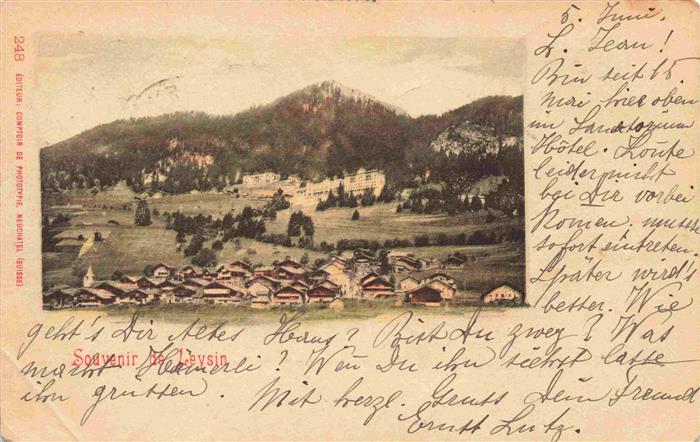 248 ÉDITEUR: COMPTOIR DE PHOTOTYPIE, NEUCHATEL (SUISSE)
5. Juni.
L. Jean!
Bin seit 15.
mai hier oben
im Sanatorium
Hôtel. Konte
leider nicht
bei Dir vorbei
Komen. musste
sofort eintreten.
Später wird's
besser. Wie
geht's Dir Altes Haus? Bist Du zweg? Was
macht Heinerli? Wen Du ihn siehst lasse
Souvenir de Leysin
ihn grüssen. Mit herzl. Gruss Dein Freund
Ernst Lutz.